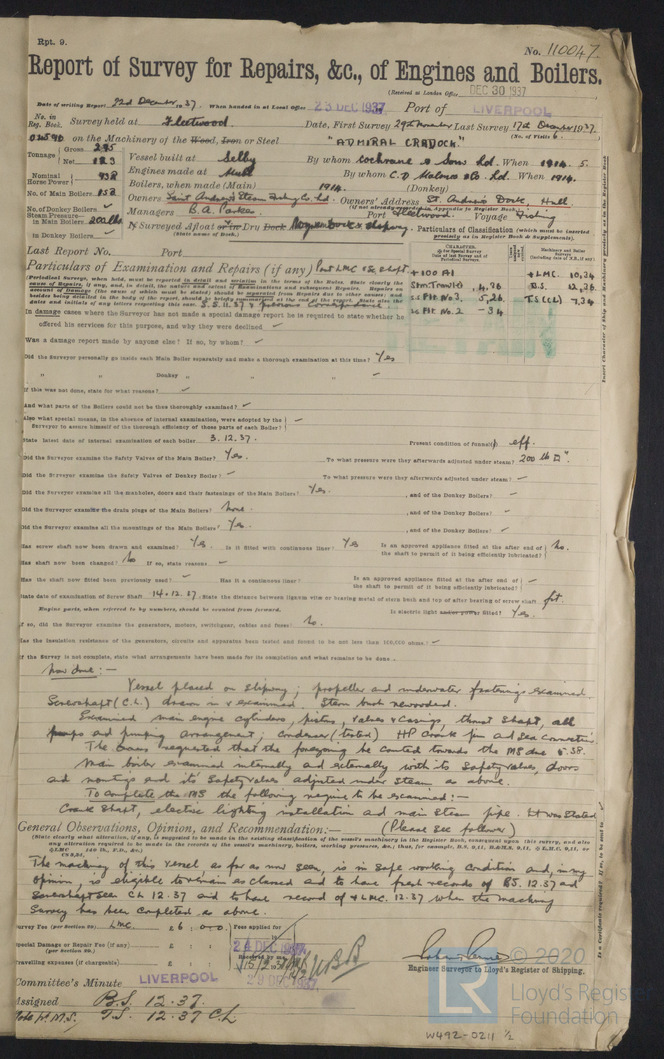 Rpt. 9.
No. 110047
Report of Survey for Repairs, &c., of Engines and Boilers.
(Received at London Office DEC 30 1937
Date of writing Report 22nd December 1937. When handed in at Local Office 23 DEC 1937 Port of LIVERPOOL
No. in Reg. Book. Survey held at Fleetwood. Date, First Survey 29th November Last Survey 17th December 1937.
(No. of Visits 6.)
on the Machinery of the Wood, Iron or Steel "ADMIRAL CRADOCK."
Tonnage Gross 295 Net 123
Vessel built at Selby By whom Cochrane & Sons Ld. When 1914. 5.
Nominal Horse Power 93R Engines made at Hull By whom C.D. Holmes & Co. Ld. When 1914.
No. of Main Boilers 1SB Boilers, when made (Main) 1914. (Donkey)
No. of Donkey Boilers ✓ Owners Saint Andrew's Steam Fishing Co. Ld. Owners' Address St. Andrew's Dock, Hull
(if not already recorded in Appendix to Register Book.)
Steam Pressure in Main Boilers 200 lbs Managers B.A. Parkes. Port Fleetwood. Voyage Fishing
in Donkey Boilers ✓ If Surveyed Afloat or in Dry Dock Wyre Dock & slipway
(State name of Dock.)
Particulars of Classification (which must be inserted precisely as in Register Book & Supplements).
Last Report No. Port
Particulars of Examination and Repairs (if any) Part LMC & Sc shaft.
+100 A1 +LMC. 10,34
Stm. Trawler 4,36 B.S. 12,36
ss Flt. No. 3. 5,26 T.S (CL) 7,34
ss Flt. No. 2 - 34
In damage cases where the Surveyor has not made a special damage report he is required to state whether he
offered his services for this purpose, and why they were declined ✓
Was a damage report made by anyone else? If so, by whom? ✓
Did the Surveyor personally go inside each Main Boiler separately and make a thorough examination at this time? Yes
" " Donkey " " " ✓
If this was not done, state for what reasons? ✓
And what parts of the Boilers could not be thus thoroughly examined? ✓
Also what special means, in the absence of internal examination, were adopted by the
Surveyor to assure himself of the thorough efficiency of those parts of each Boiler? ✓
State latest date of internal examination of each boiler 3.12.37. Present condition of funnel(s) eff.
Did the Surveyor examine the Safety Valves of the Main Boiler? Yes. To what pressure were they afterwards adjusted under steam? 200 lb □".
Did the Surveyor examine the Safety Valves of Donkey Boiler? ✓ To what pressure were they afterwards adjusted under steam? ✓
Did the Surveyor examine all the manholes, doors and their fastenings of the Main Boilers? Yes. , and of the Donkey Boilers? ✓
Did the Surveyor examine the drain plugs of the Main Boilers? None. , and of the Donkey Boilers? ✓
Did the Surveyor examine all the mountings of the Main Boilers? Yes. , and of the Donkey Boilers? ✓
Has screw shaft now been drawn and examined? Yes. Is it fitted with continuous liner? Yes Is an approved appliance fitted at the after end of
the shaft to permit of it being efficiently lubricated? No.
Has shaft now been changed? No If so, state reasons ✓
Has the shaft now fitted been previously used? ✓ Has it a continuous liner? Is an approved appliance fitted at the after end of
the shaft to permit of it being efficiently lubricated? ✓
State date of examination of Screw Shaft 14.12.37. State the distance between lignum vitæ or bearing metal of stern bush and top of after bearing of screw shaft fit.
Engine parts, when referred to by numbers, should be counted from forward. Is electric light and/or power fitted? Yes.
If so, did the Surveyor examine the generators, motors, switchgear, cables and fuses? No.
Has the insulation resistance of the generators, circuits and apparatus been tested and found to be not less than 100,000 ohms? ✓
If the Survey is not complete, state what arrangements have been made for its completion and what remains to be done.
Now done:—
Vessel placed on slipway; propeller and underwater fastenings examined.
Screwshaft (C.L.) drawn in & examined. Stern bush rewooded.
Examined main engine cylinders, pistons, valves & casings, thrust shaft, all
pumps and pumping arrangement; condenser (tested) HP Crank pin and Sea Connections.
The owners requested that the foregoing be counted towards the MS due 5.38.
Main boiler examined internally and externally with its safety valves, doors
and mountings and its safety valves adjusted under steam as above.
To complete the MS the following require to be examined:—
Crank shaft, electric lighting installation and main steam pipe. It was stated
General Observations, Opinion, and Recommendation:— (Please see follower)
The machinery of this vessel as far as now seen, is in safe working condition and, in my
opinion is eligible to remain as classed and to have fresh records of BS. 12.37 and
Screwshaft seen CL 12.37 and to have record of +LMC. 12.37 when the machinery
Survey has been completed as above.
Survey Fee (per Section 29) LMC £ 6 : 0 : 0 Fees applied for
Special Damage or Repair Fee (if any) £ : : 24 DEC 1937
(per Section 29.)
Travelling expenses (if chargeable) £ : :
Engineer Surveyor to Lloyd's Register of Shipping.
Committee's Minute LIVERPOOL 29 DEC 1937
Assigned B.S. 12.37.
T.S. 12.37 C.L
© 2020
LR
Lloyd's Register
Foundation
W492-0211 1/2